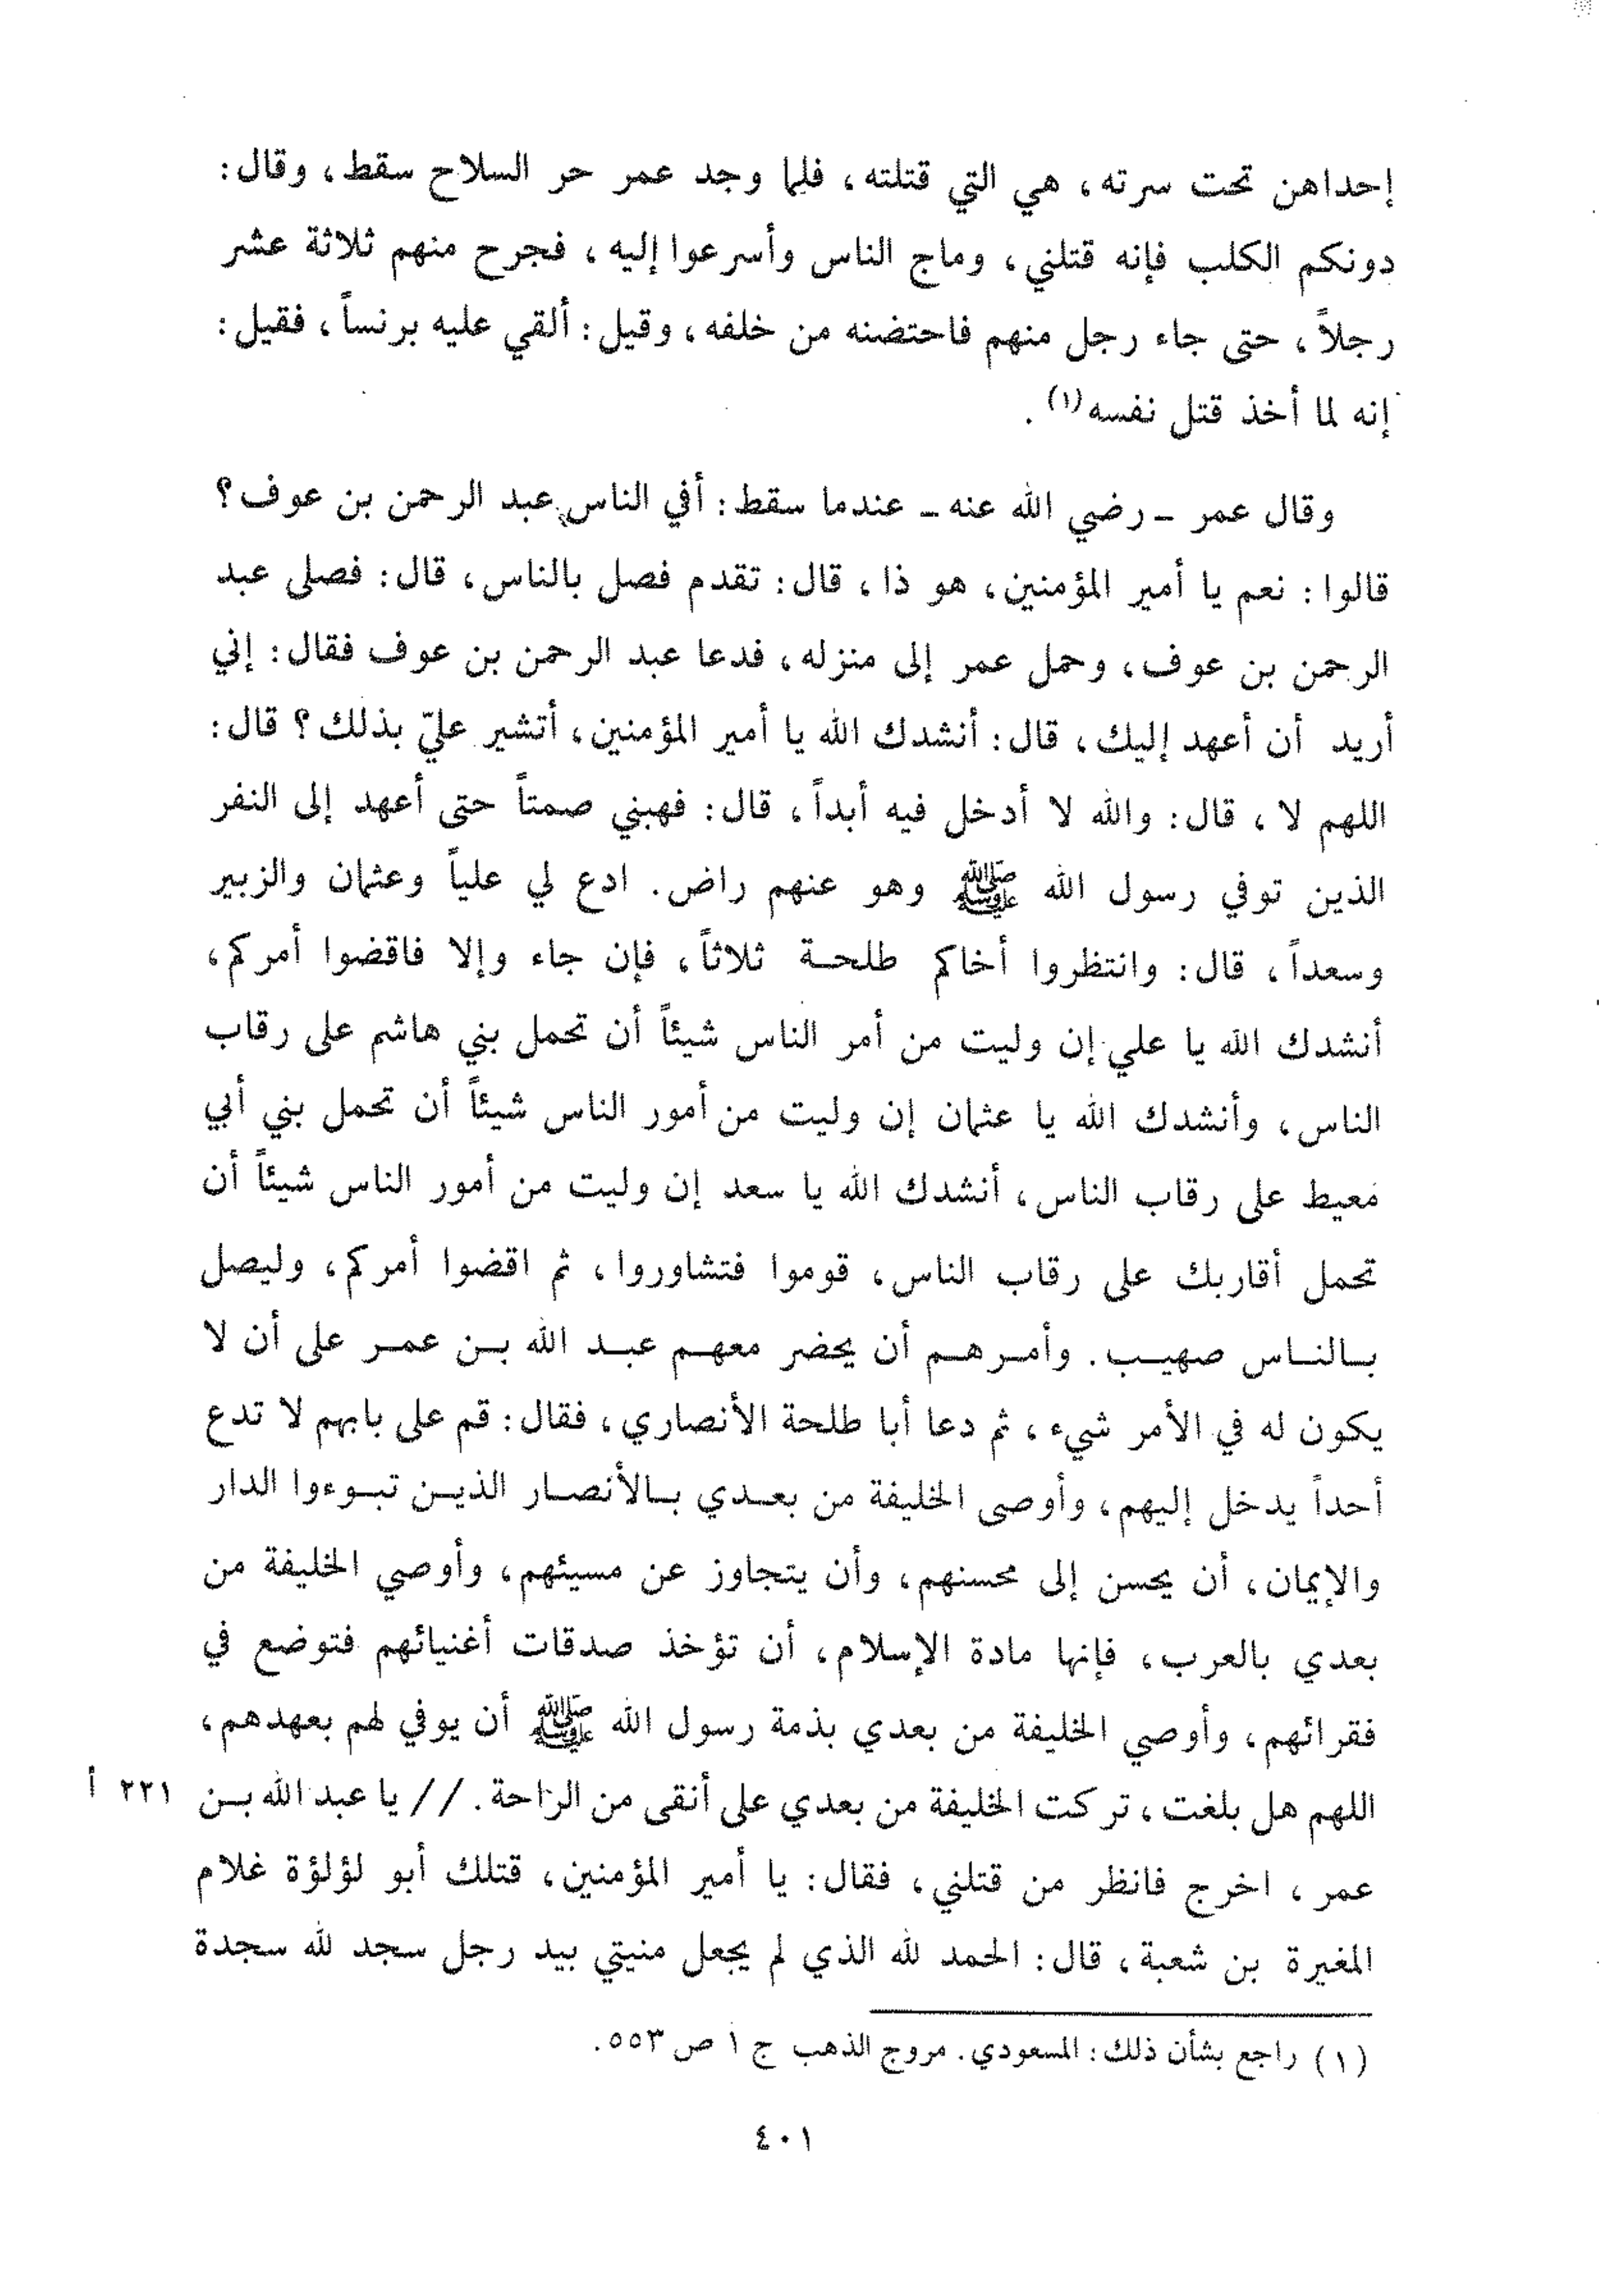 إحداهن تحت سرته، هي التي قتلته، فلما وجد عمر حر السلاح سقط، وقال:
دونكم الكلب فإنه قتلني، وماج الناس وأسرعوا إليه، فجرح منهم ثلاثة عشر
رجلاً، حتى جاء رجل منهم فاحتضنه من خلفه، وقيل: ألقي عليه برنساً، فقيل:
إنه لما أخذ قتل نفسه(١).
وقال عمر ـ رضي الله عنه ـ عندما سقط: أفي الناس عبد الرحمن بن عوف؟
قالوا: نعم يا أمير المؤمنين، هو ذا، قال: تقدم فصل بالناس، قال: فصلى عبد
الرحمن بن عوف، وحمل عمر إلى منزله، فدعا عبد الرحمن بن عوف فقال: إني
أريد أن أعهد إليك، قال: أنشدك الله يا أمير المؤمنين، أتشير عليّ بذلك؟ قال:
اللهم لا، قال: والله لا أدخل فيه أبداً، قال: فهبني صمتاً حتى أعهد إلى النفر
الذين توفي رسول الله ﷺ وهو عنهم راض. ادع لي علياً وعثمان والزبير
وسعداً، قال: وانتظروا أخاكم طلحة ثلاثاً، فإن جاء وإلا فاقضوا أمركم،
أنشدك الله يا علي إن وليت من أمر الناس شيئاً أن تحمل بني هاشم على رقاب
الناس، وأنشدك الله يا عثمان إن وليت من أمور الناس شيئاً أن تحمل بني أبي
معيط على رقاب الناس، أنشدك الله يا سعد إن وليت من أمور الناس شيئاً أن
تحمل أقاربك على رقاب الناس، قوموا فتشاوروا، ثم اقضوا أمركم، وليصل
بالناس صهيب. وأمرهم أن يحضر معهم عبد الله بن عمر على أن لا
يكون له في الأمر شيء، ثم دعا أبا طلحة الأنصاري، فقال: قم على بابهم لا تدع
أحداً يدخل إليهم، وأوصى الخليفة من بعدي بالأنصار الذين تبوءوا الدار
والإيمان، أن يحسن إلى محسنهم، وأن يتجاوز عن مسيئهم، وأوصي الخليفة من
بعدي بالعرب، فإنها مادة الإسلام، أن تؤخذ صدقات أغنيائهم فتوضع في
فقرائهم، وأوصي الخليفة من بعدي بذمة رسول الله ﷺ أن يوفي لهم بعهدهم،
اللهم هل بلغت، تركت الخليفة من بعدي على أنقى من الراحة. // يا عبد الله بن ٢٢١ أ
عمر، اخرج فانظر من قتلني، فقال: يا أمير المؤمنين، قتلك أبو لؤلؤة غلام
المغيرة بن شعبة، قال: الحمد لله الذي لم يجعل منيتي بيد رجل سجد لله سجدة
(١) راجع بشأن ذلك: المسعودي. مروج الذهب ج ١ ص ٥٥٣.
٤٠١